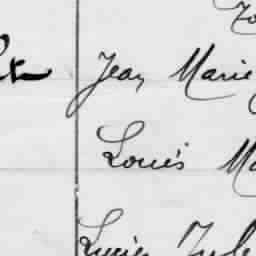 Jean Marie
Louis Ma
Lucien Jule